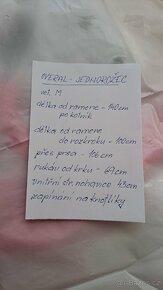 OVERAL - JEDNOROŽEC
vel. M
délka od ramene - 140cm
po kotník
délka od ramene
do rozkroku - 100cm
přes prsa - 106cm
rukáv od krku - 69cm
vnitřní str. nohavice 43cm
zapínání na knoflíky